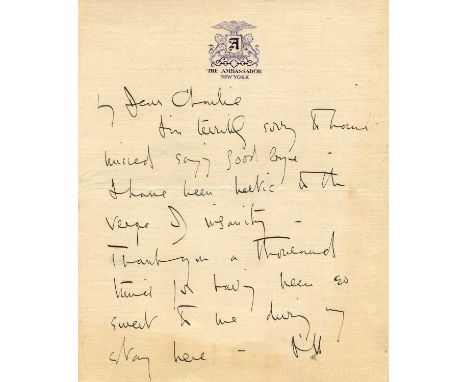 A
THE AMBASSADOR
NEW YORK
My Dear Charlie
I'm terribly sorry to have
missed saying good bye -
I have been hectic to the
verge of insanity -
Thanking you a thousand
times for having been so
sweet to me during my
stay here -